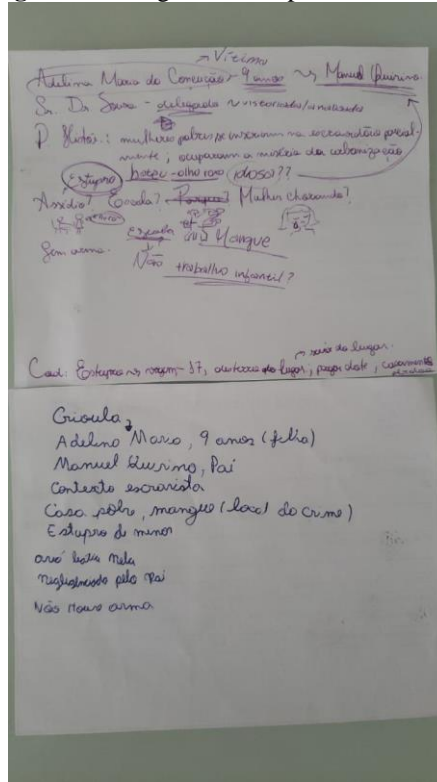 → Vítima
Adelina Maria da Conceição - 9 anos ~> Manuel Quirino.
Sr. Dr. Souza - delegado ~
P. Histór.: mulheres pobres se inseriam na escravidão
mente, ocuparam a miséria da urbanização
Estupro - olho roxo (idosa)??
Assédio? Escola? Mulher chorando?
Escola Mangue
Sem arma. Não trabalho infantil?
→ saia do lugar.
Cod: Estupro ~> virgem - 17, lugar, pagar dote, casamento
Crioula,
Adelino Maria, 9 anos (filha)
Manuel Quirino, Pai
Contexto escravista
Casa pobre, mangue (local do crime)
Estupro de menor
avó batia nela
negligenciada pelo Pai
Não houve arma